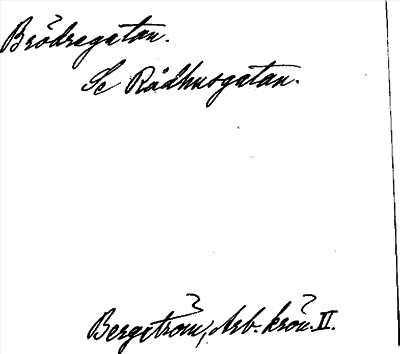 Brödragatan.
Se Rådhusgatan.
Bergström, Arb. krön. II.